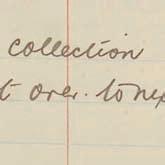 collection
t over. to nex